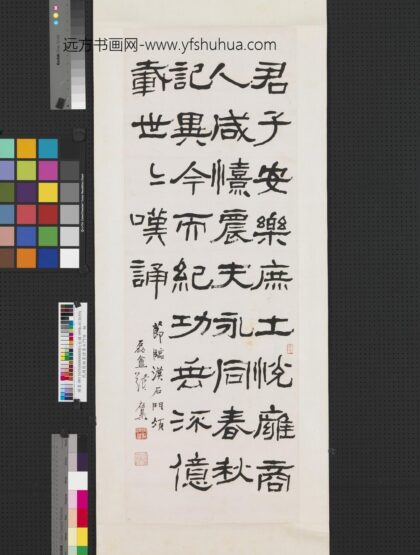 远方书画网-www.yfshuhua.com
君子安樂庶土悅雍商
人咸憘農夫永同春秋
記異今而紀功垂流億
載世〻嘆誦
節臨漢石門頌
磊盦